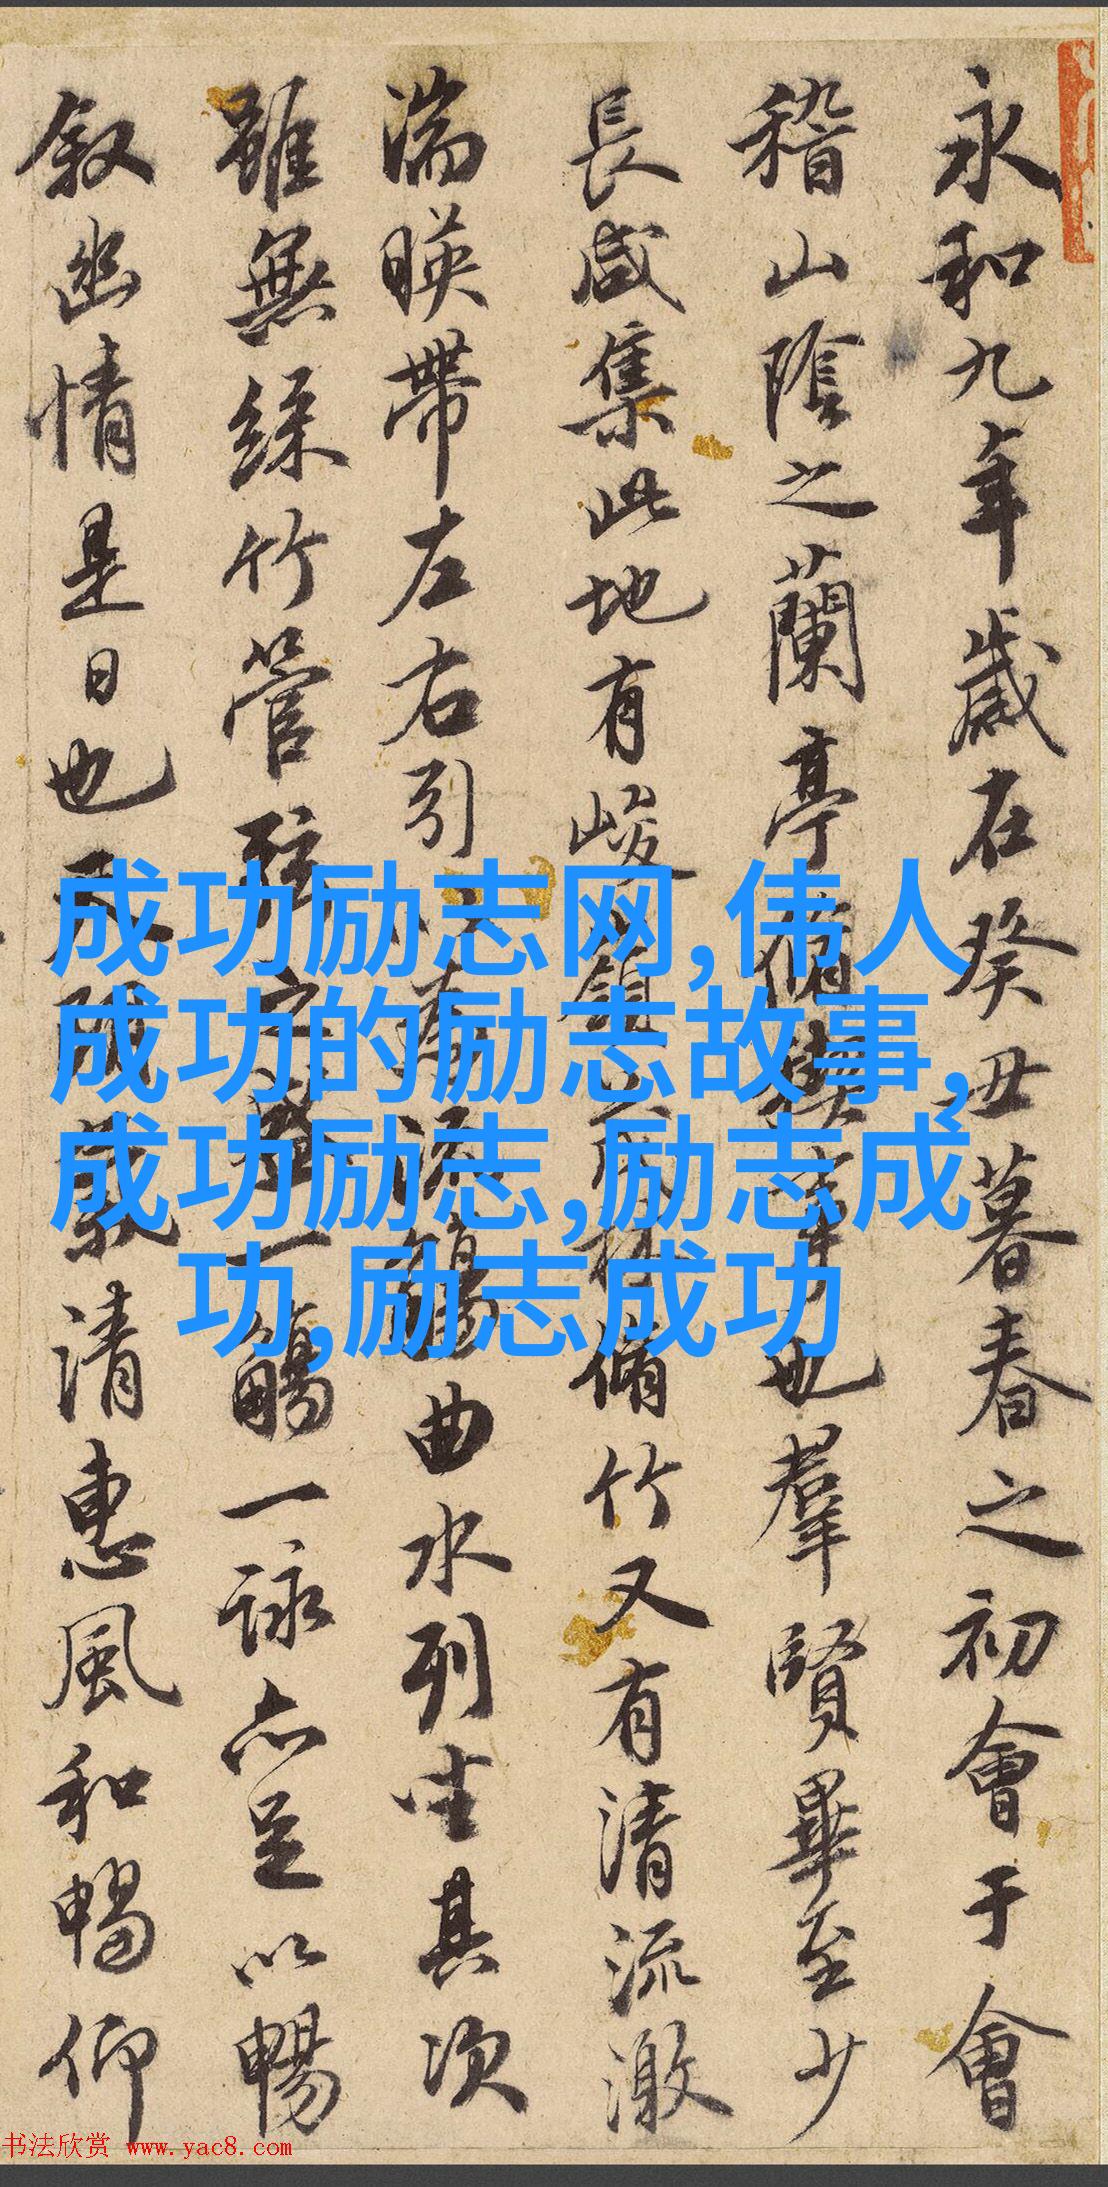 永和九年歲在癸丑暮春之初會于會
稽山陰之蘭亭脩禊事也羣賢畢至少
長咸集此地有峻領茂林脩竹又有清流激
湍暎帶左右引以為流觴曲水列坐其次
雖無絲竹管弦之盛一觴一詠亦足以暢
叙幽情是日也天朗氣清惠風和暢仰
成功励志网,伟人
成功的励志故事,
成功励志,励志成
功,励志成功
书法欣赏 www.yac8.com